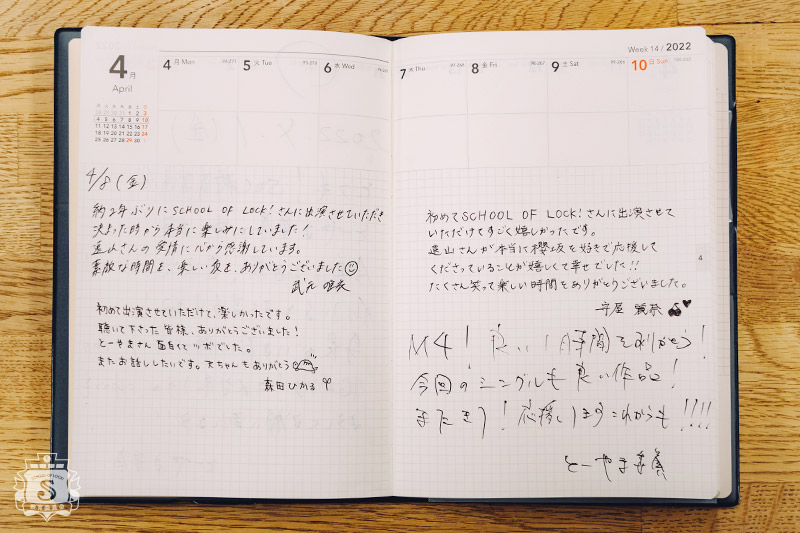 4月
April
4 月 Mon
5 火 Tue
6 水 Wed
4/8 (金)
約2年ぶりにSCHOOL OF LOCK!さんに出演させていただき
決まった時から本当に楽しみにしていました!
遠山さんの愛情に心から感謝しています。
素敵な時間を、楽しい夜を、ありがとうございました
武元 唯衣
初めて出演させていただけて、楽しかったです。
聴いて下さった皆様、ありがとうございました!
とーやまさん面白くてツボでした。
またお話ししたいです。天ちゃんもありがとう
森田ひかる
Week 14 / 2022
7 木 Thu
8 金 Fri
9 土 Sat
10 日 Sun
初めてSCHOOL OF LOCK!さんに出演させて
いただけてすごく嬉しかったです。
遠山さんが本当に櫻坂を好きで応援して
くださっていることが嬉しくて幸せでした!!
たくさん笑って楽しい時間をありがとうございました。
守屋 麗奈
4
M4!良い1時間をありがとう!
今回のシングルも良い作品!
またきて!応援しますこれからも!!!!
とーやま委員
S